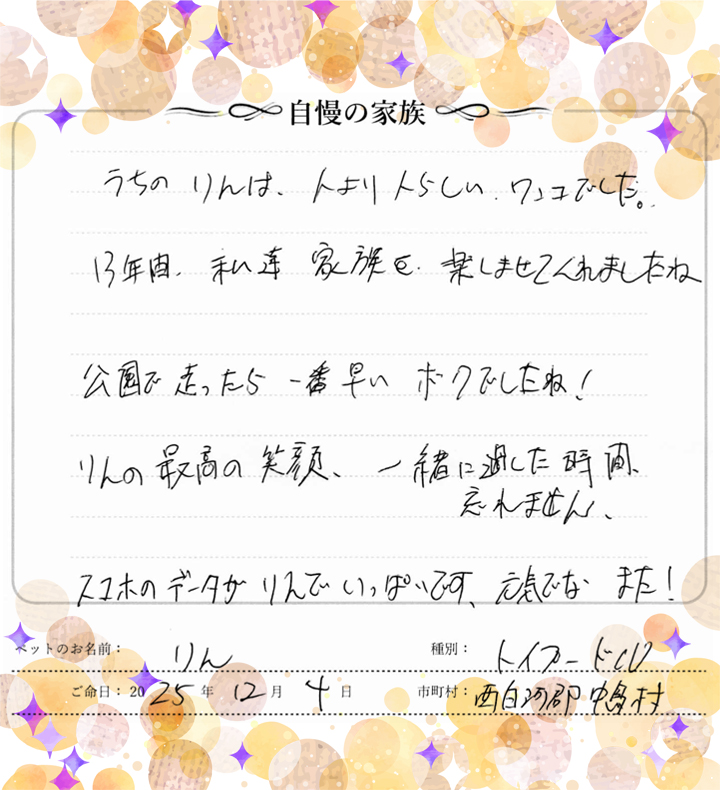 自慢の家族
うちの りんは、人より人らしい、ワンコでした。
13年間、私達 家族を、楽しませてくれましたね
公園で 走ったら 一番早い ボクでしたね!
りんの 最高の 笑顔、一緒に過した 時間、
忘れません、
スマホのデータが りんで いっぱいです、元気でな また!
ペットのお名前: りん 種別: トイプードル
ご命日: 2025年 12月 4日 市町村: 西白河郡 中島村